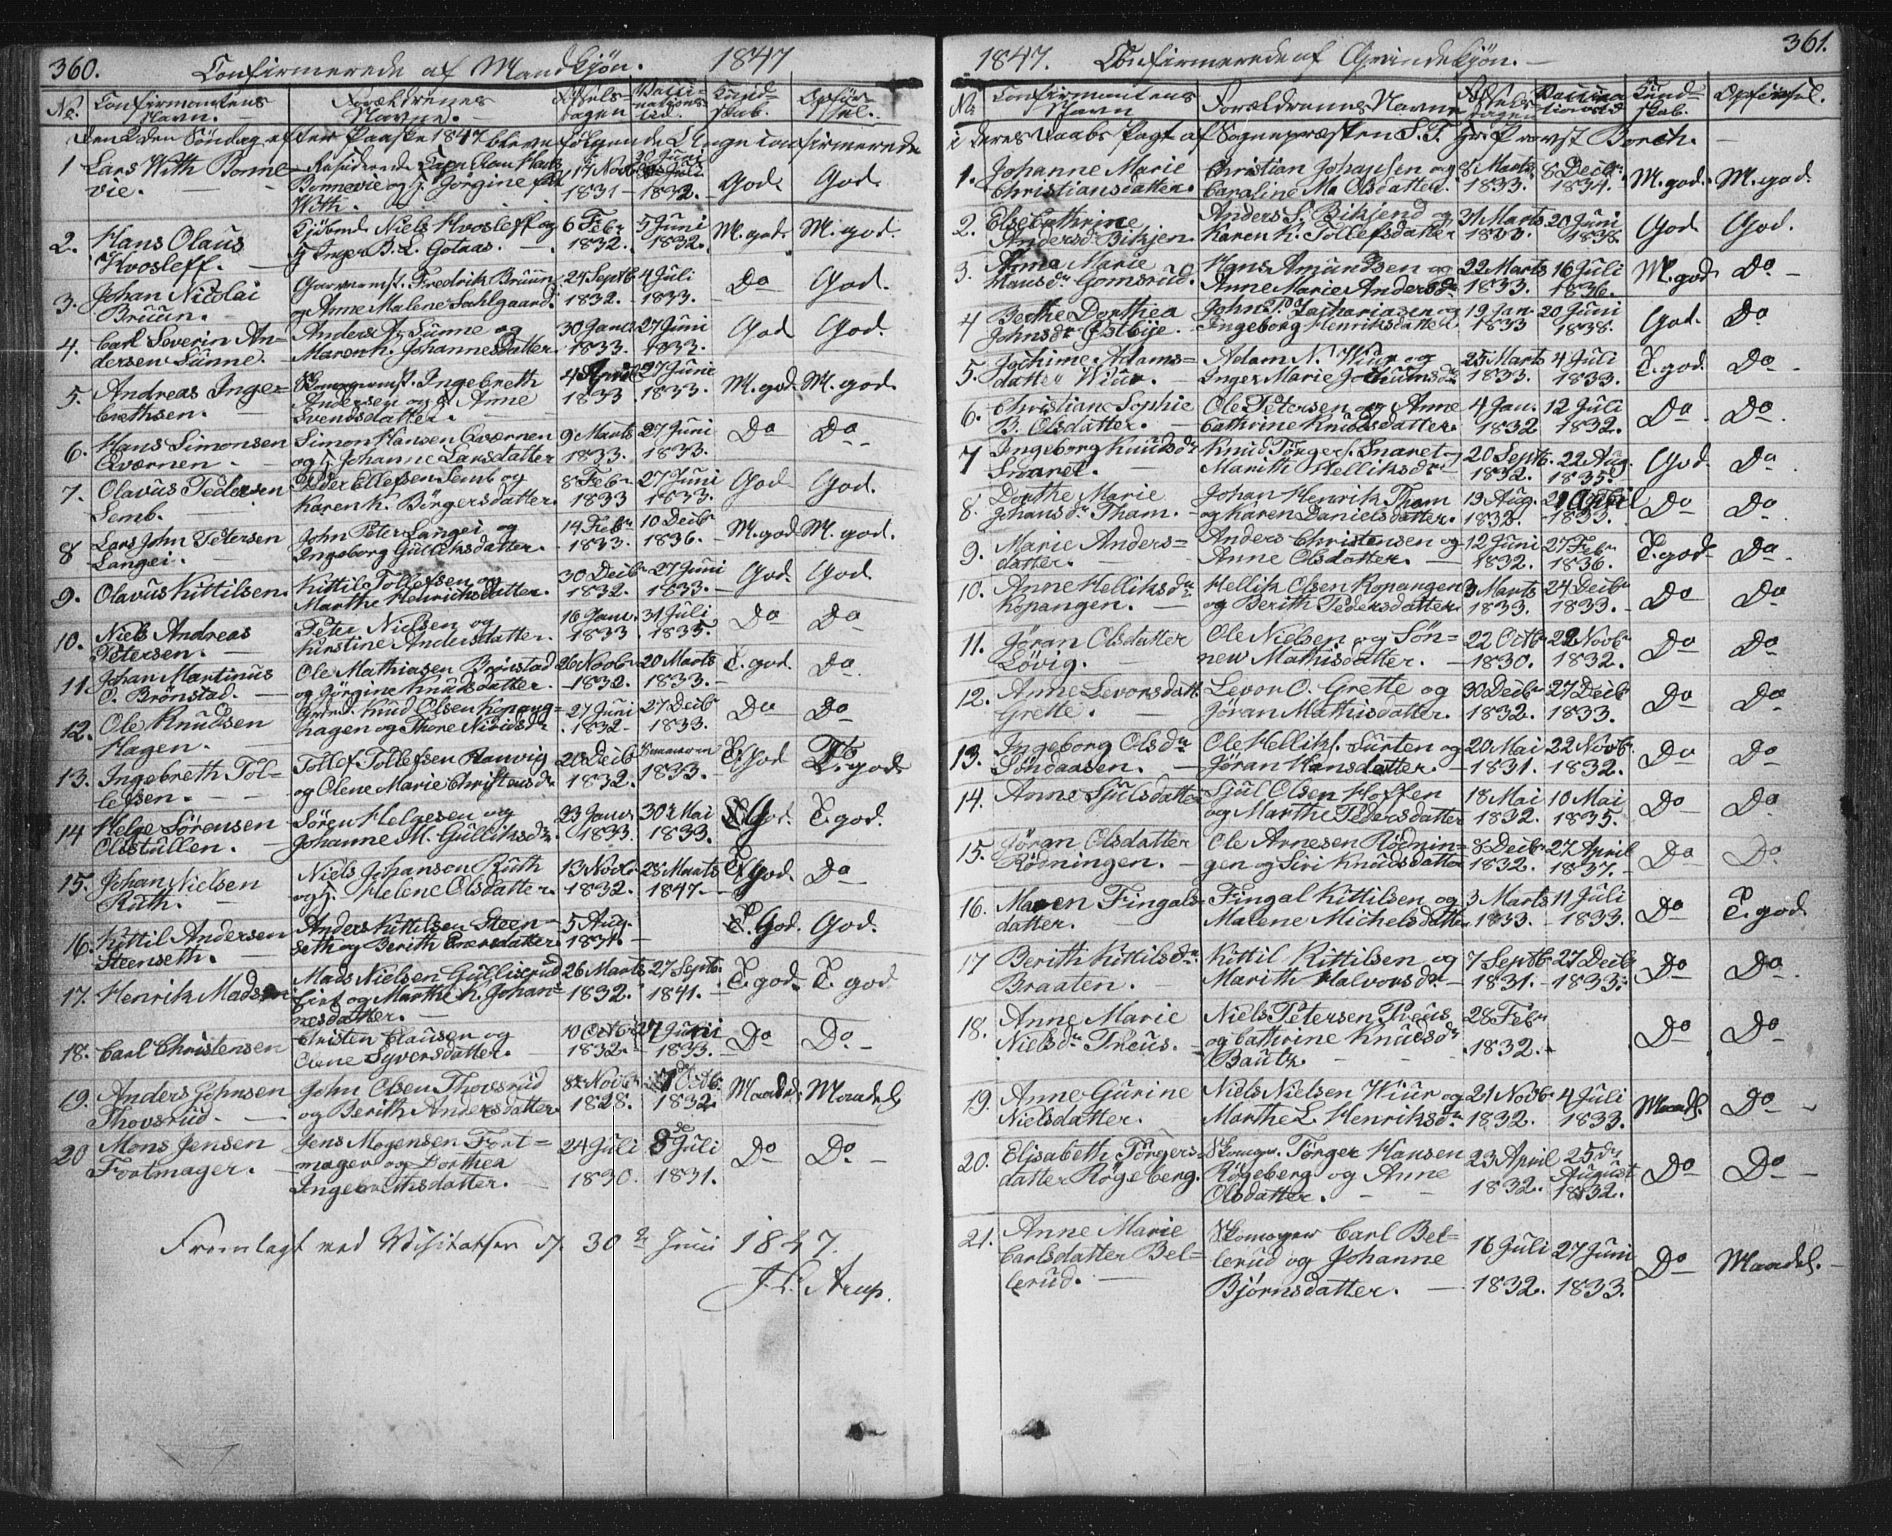 360. Confirmerede af Mandkjøn. 1847
No. Confirmantens Navn. Forældrenes Navne. Fødsels-dagen Vacci-nations-tid. Kund-skab. Opfør-sel.
Den 2den Søndag efter Paaske 1847 bleve følgende Unge confirmerede
1 Lars With Bonne-vie. Residerende Capn Hans Bonnevie og J. Jørgine With. 17 Novbr 1831 Juli 1832. God. God.
2. Hans Olaus Kvosleff. Kjøbmd. Niels Kvosleff og Inger B. L. Gotaas. 6 Febr 1832. 5 Juni 1832. M. god. M. god.
3. Johan Nicolai Bruun. Garverm. Fredrik Bruun og Anne Malene Sahlgaard. 24 Septb 1832. 4 Juli 1833. Do God.
4. Carl Severin An-dersen Sünne. Anders A. Sünne og Maren K. Johannesdatter. 30 Janr 1833. 27 Juni 1833. God God.
5. Andreas Inge-brethsen. Ingebreth Andersen og Anne Svendsdatter. 4 April 1833 27 Juni 1833. M. god. M. god.
6. Hans Simonsen Qværnen. Simon Hansen Qværnen og Johanne Larsdatter 9 Marts 1833. 27 Juni 1833. Do Do
7. Olavus Pedersen Semb. Peder Ellefsen Semb og Karen K. Børgersdatter. 8 Febr 1833 27 Juni 1833. God God.
8 Lars John Petersen Langei. John Peter Langei og Ingeborg Gulliksdatter. 14 Febr 1833. 10 Decbr 1836. M. god M. god.
9. Olavus Kittilsen. Kittil Tollefsen og Marthe Henriksdatter. 30 Decbr 1832. 27 Juni 1833. God. God
10. Niels Andreas Petersen. Peter Nielsen og Kirstine Andersdatter. 16 Janr. 1833. 31 Juli 1835. Do Do
11. Johan Martinus O. Brønstad. Ole Mathiasen Brønstad og Jørgine Knudsdatter. 26 Novbr 1832. 20 Marts 1833. T. god. Do
12. Ole Knudsen Hagen. Knud Olsen Kopang-hagen og Thore 27 Juni 1832. 27 Decbr 1833. Do Do
13. Ingebreth Tol-lefsen. Tollef Tollefsen Hauvig og Olene Marie Christensdr 20 Decb 1832. Sommeren 1833. T. God T. god
14 Helge Sørensen Olsstullen. Søren Helgesen og Johanne M. Gulliksdr 23 Janr. 1833. 30 Mai 1833. T. God. T. god.
15. Johan Nielsen Ruth. Niels Johansen Ruth og Helene Olsdatter. 13 Novbr 1832. 28 Marts 1847. T. god. Do
16. Kittil Andersen Steenseth. Anders Kittilsen Steen-seth og Berith Evensdatter. 5 Aug. 1831. T. God. God.
17. Henrik Madsen Mads Nielsen Gulliksrud og Marthe K. Johan-nesdatter. 26 Marts 1832. 27 Septb. 1841. T. god. T. god
18. Carl Christensen Cristen Clausen og Olene Syversdatter. 10 Octbr 1832. 27 Juni 1833. Do Do
19. Anders Johnsen Thovsrud John Olsen Thovsrud og Berith Andersdatter 8de Novbr 1828. 1 Octb. 1832. Maadel. Maadel.
20 Mons Jensen Fortmager. Jens Mogensen Fort-mager og Dorthea Ingebrethsdatter. 24 Juli 1830. 8de Juli 1831. Do Do
Fremlagt ved Visitatsen d. 30te Juni 1847.
J. L. Arup.
1847. Confirmerede af Qvindekjøn. 361.
No Confirmantens Navn Forældrenes Navne Fødsels-dagen Vaccina-tionstid Kund-skab. Opførsel.
i deres Daabs Pagt af Sognepræsten S. T. Hr. Provst Borch.
1. Johanne Marie Christiansdatter. Christian Johansen og Caroline Ma Olsdatter. 8 Marts 1833. 8 Decbr. 1834. M. god. M. god.
2. Else Cathrine Andersdr Bikjen. Anders S. Bikjend og Karen K. Tollefsdatter 31 Marts 1833. 20 Juni 1838. God God.
3. Anne Marie Hansdr Gomsrud. Hans Amundsen og Anne Marie Andersdr 22 Marts 1833. 16 Juli 1836. M. god Do
4 Berthe Dorthea Johnsdr Østbye. John P. Zachariasen og Ingeborg Henriksdatter 19 Jan 1833 20 Juni 1838. God. Do
5. Jochime Adams-datter Wiur. Adam N. Wiur og Inger Marie Jochumsdr 25 Marts 1833. 4 Juli 1833. T. god. Do
6. Christiane Sophie B. Olsdatter. Ole Petersen og Anne Cathrine Knudsdatter. 4 Jan. 1832 12 Juli 1832. Do Do
7 Ingeborg Knudsdr Snaret. Knud Törgers. Snaret og Marith Helliksdr 20 Septb. 1832. 22 Aug. 1835. God. Do
8. Dorthe Marie Johansdr Tham. Johan Henrik Tham og Karen Danielsdatter. 19 Aug. 1832. 29 April 1833. Do Do
9. Marie Anders-datter. Anders Christensen og Anne Olsdatter. 12 Juni 1832. 27 Febr 1836. T. god Do
10. Anne Helliksdr Kopangen. Hellik Olsen Kopangen og Berith Pedersdatter 3 Marts 1833. 24 Decbr 1833. Do Do
11. Jøran Olsdatter Løvig. Ole Nielsen og Søn-new Mathisdatter. 22 Octbr 1830. 22 Novbr 1832. Do Do
12. Anne Levorsdatt. Grette. Levor O. Grette og Jøran Mathisdatter. 30 Decbr 1832. 27 Decb 1833. Do Do
13. Ingeborg Olsdr Søndaasen. Ole Helliks. Sürten og Jøran Hansdatter. 20 Mai 1831. 22 Novb. 1832. Do Do
14. Anne Sjulsdatter Sjul Olsen Hoffen og Marthe Pedersdatter 18 Mai 1832. 10 Mai 1835. Do Do
15. Jøran Olsdatter Rødningen. Ole Arnesen Rødnin-gen og Siri Knudsdatter 8 Decbr 1832. 27 April 1837. Do Do
16. Maren Fingals-datter. Fingal Kittilsen og Malene Michelsdatter 3 Marts 1833. 11 Juli 1833. Do T. god
17 Berith Kittilsdr Braaten. Kittil Kittilsen og Marith Halvorsdr 7 Septbr 1831. 27 Decbr 1833. Do Do.
18. Anne Marie Nielsdr Preus. Niels Petersen Preus og Cathrine Knudsdr Bautz. 28 Febr 1832. Do Do
19. Anne Gurine Nielsdatter. Niels Nielsen Wiur og Marthe L. Henriksdr 21 Novbr 1832. 4 Juli 1833. Maadel. Do
20. Elisabeth Törgers-datter Røgeberg. Skomager. Törger Hansen Røgeberg og Anne Olsdatter. 23 April 1832. 25de August 1832. Do Do
21. Anne Marie Carlsdatter Bel-lerud. Skomager Carl Bel-lerud og Johanne Bjørnsdatter. 16 Juli 1832. 27 Juni 1833. Do Maadel.